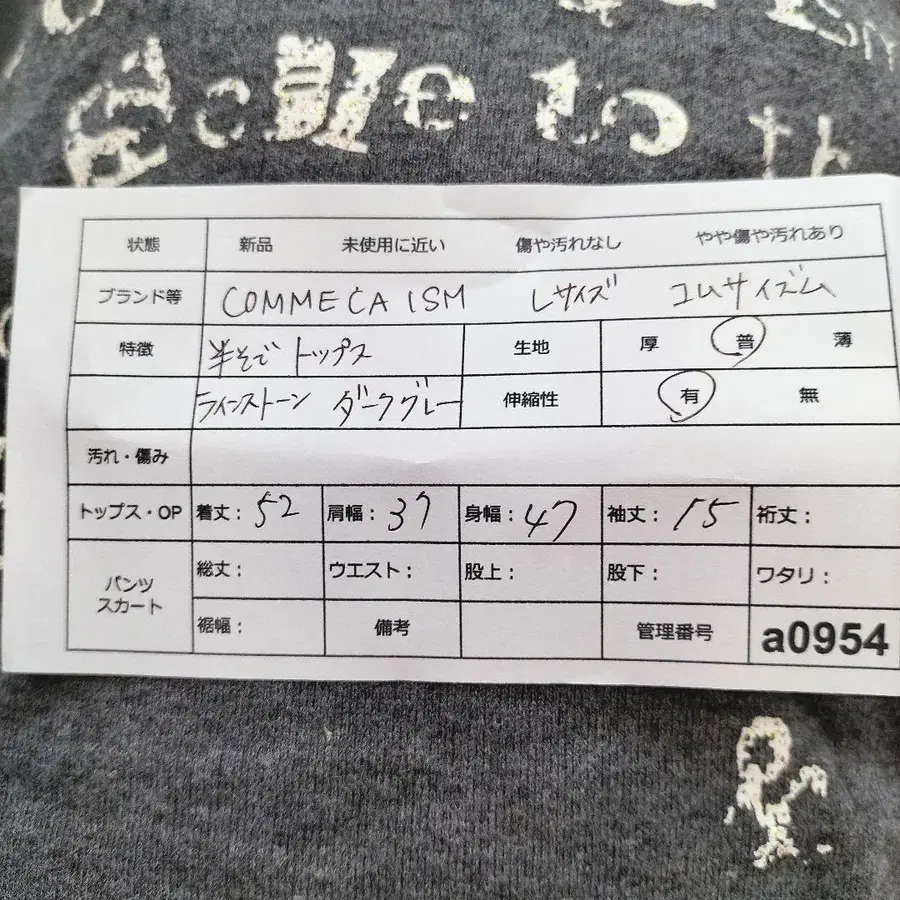 to th
状態 新品 未使用に近い 傷や汚れなし やや傷や汚れあり
ブランド等 COMMECA ISM Lサイズ コムサイズム
特徴 半そで トップス 生地 厚 普 薄
ラインストーン ダークグレー 伸縮性 有 無
汚れ・傷み
トップス・OP 着丈：52 肩幅：37 身幅：47 袖丈：15 裄丈：
パンツ スカート 総丈： ウエスト： 股上： 股下： ワタリ：
裾幅： 備考 管理番号 a0954